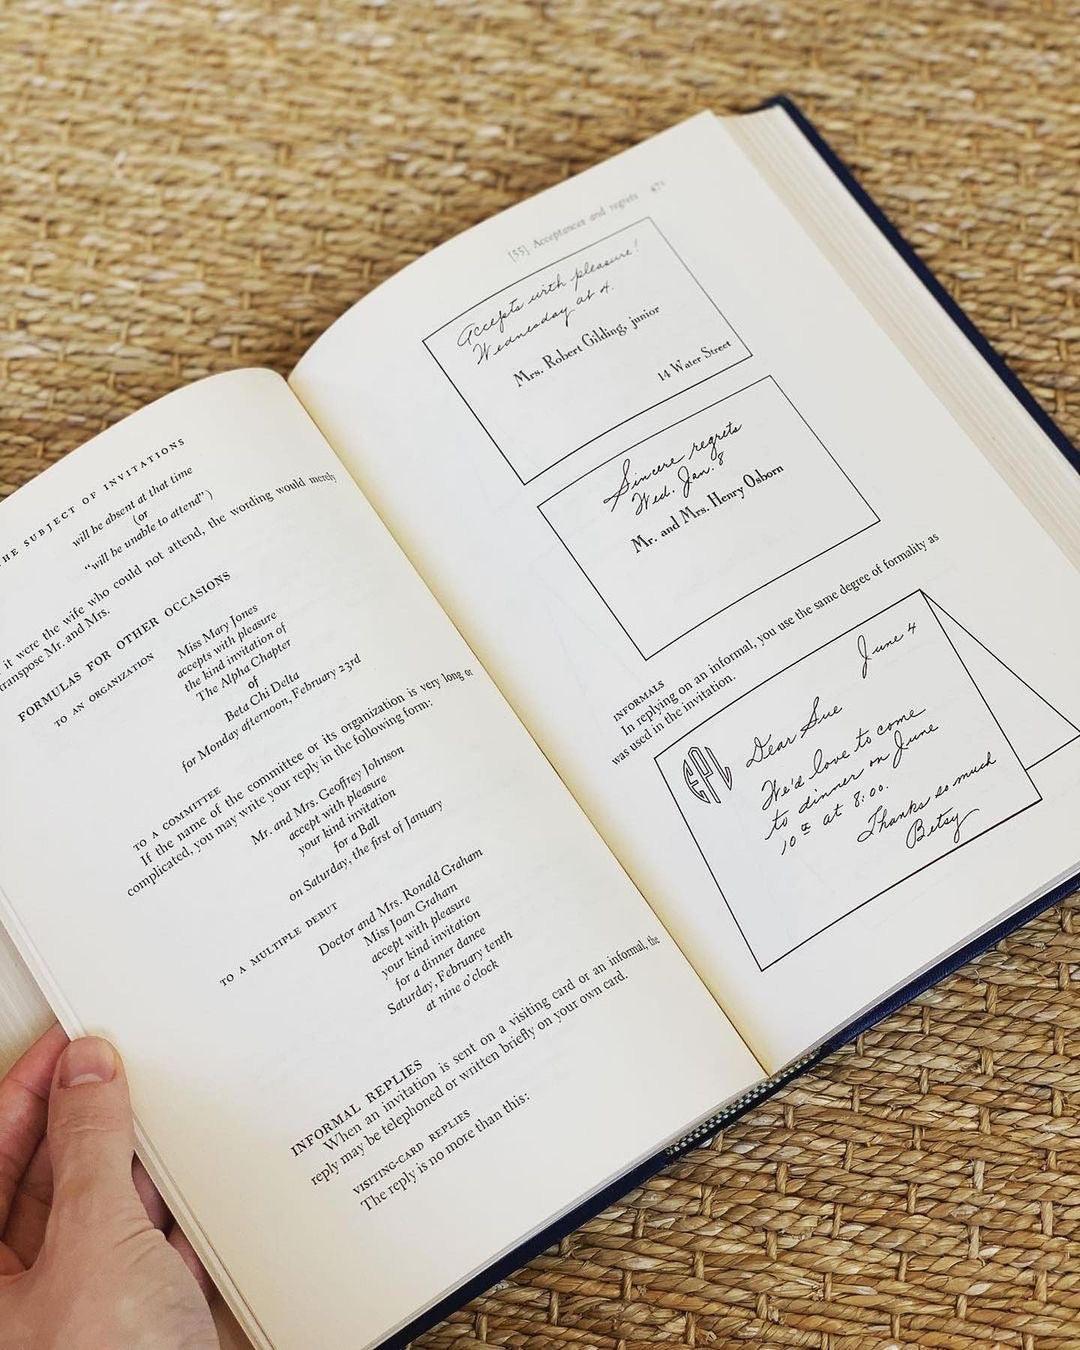 THE SUBJECT OF INVITATIONS
will be absent at that time
(or
"will be unable to attend")
it were the wife who could not attend, the wording would merely
transpose Mr. and Mrs.
FORMULAS FOR OTHER OCCASIONS
TO AN ORGANIZATION
Miss Mary Jones
accepts with pleasure
the kind invitation of
The Alpha Chapter
of
Beta Chi Delta
for Monday afternoon, February 23rd
TO A COMMITTEE
If the name of the committee or its organization is very long or
complicated, you may write your reply in the following form:
Mr. and Mrs. Geoffrey Johnson
accept with pleasure
your kind invitation
for a Ball
on Saturday, the first of January
TO A MULTIPLE DEBUT
Doctor and Mrs. Ronald Graham
Miss Joan Graham
accept with pleasure
your kind invitation
for a dinner dance
Saturday, February tenth
at nine o'clock
INFORMAL REPLIES
When an invitation is sent on a visiting card or an informal, the
reply may be telephoned or written briefly on your own card.
VISITING-CARD REPLIES
The reply is no more than this:
[55] Acceptances and regrets
Accepts with pleasure!
Wednesday at 4.
Mrs. Robert Gilding, junior
14 Water Street
Sincere regrets
Wed. Jan. 8
Mr. and Mrs. Henry Osborn
INFORMALS
In replying on an informal, you use the same degree of formality as
was used in the invitation.
June 4
EPL
Dear Sue
We'd love to come
to dinner on June
10th at 8:00.
Thanks so much
Betsy